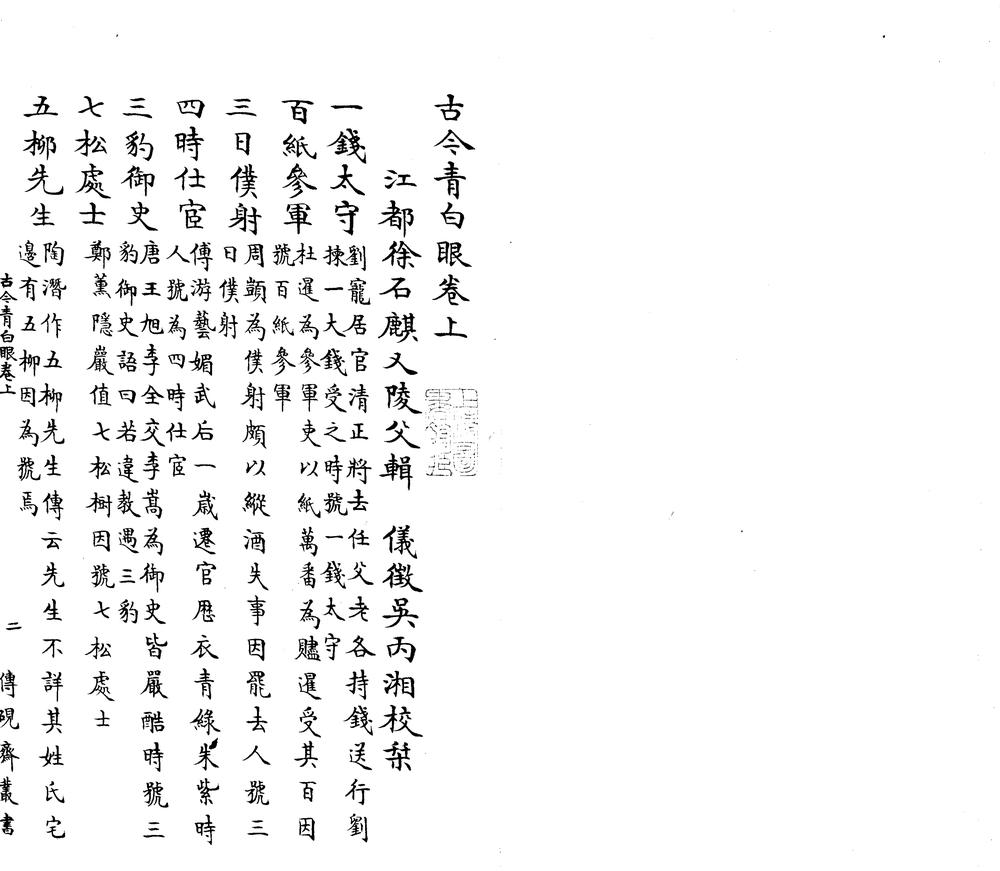 古今青白眼卷上
江都徐石麒又陵父輯　儀徵吳丙湘校栞
一錢太守
劉寵居官清正將去任父老各持錢送行劉
揀一大錢受之時號一錢太守
百紙參軍
杜暹為參軍吏以紙萬番為贐暹受其百因
號百紙參軍
三日僕射
周顗為僕射頗以縱酒失事因罷去人號三
日僕射
四時仕宦
傅游藝媚武后一歲遷官歷衣青綠朱紫時
人號為四時仕宦
三豹御史
唐王旭李全交李嵩為御史皆嚴酷時號三
豹御史語曰若違教遇三豹
七松處士
鄭薰隱巖值七松樹因號七松處士
五柳先生
陶潛作五柳先生傳云先生不詳其姓氏宅
邊有五柳因為號焉
古今青白眼卷上
二
傳硯齋叢書